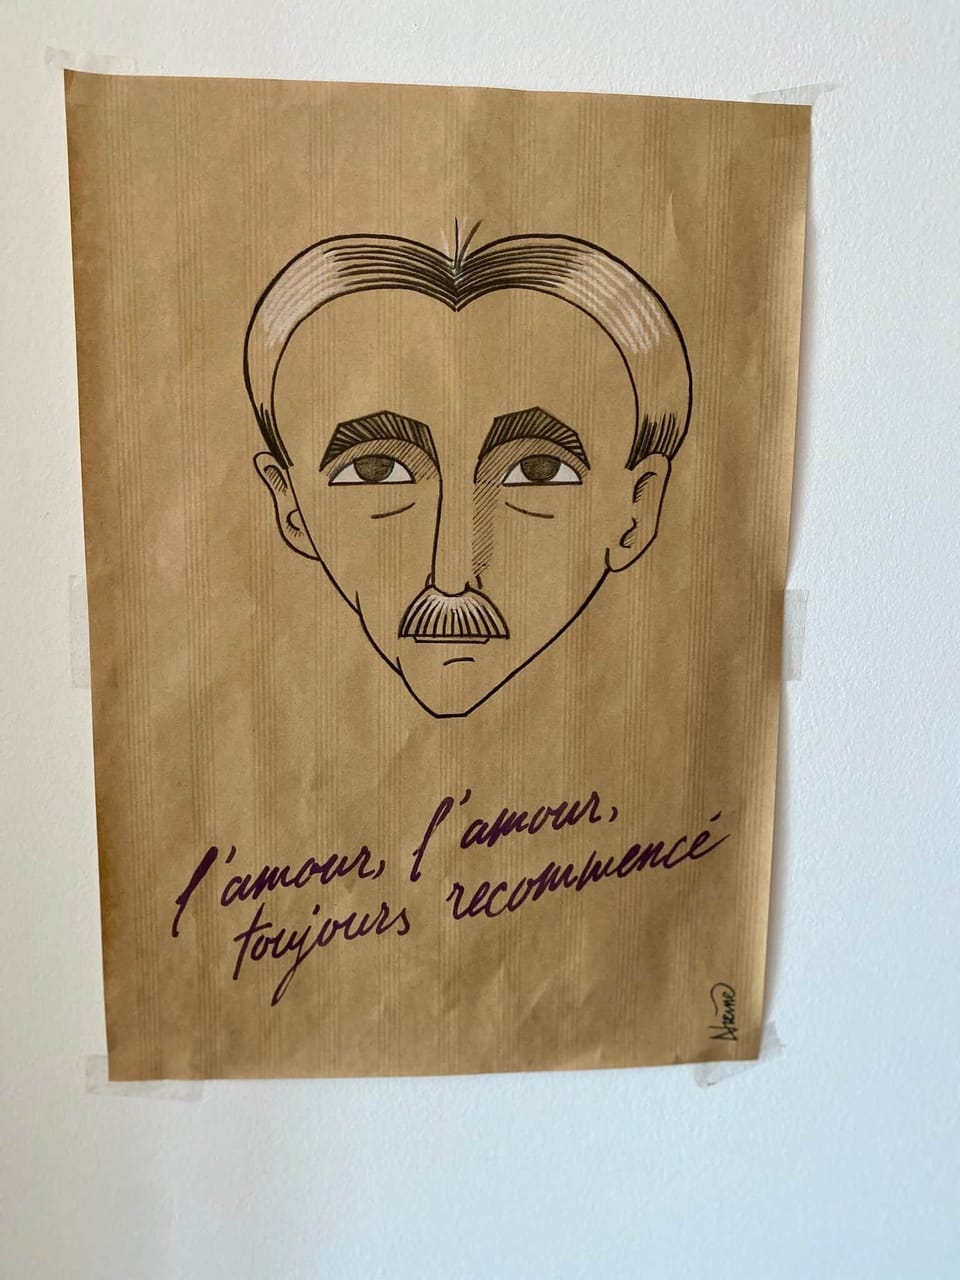 l'amour, l'amour,
toujours recommencé